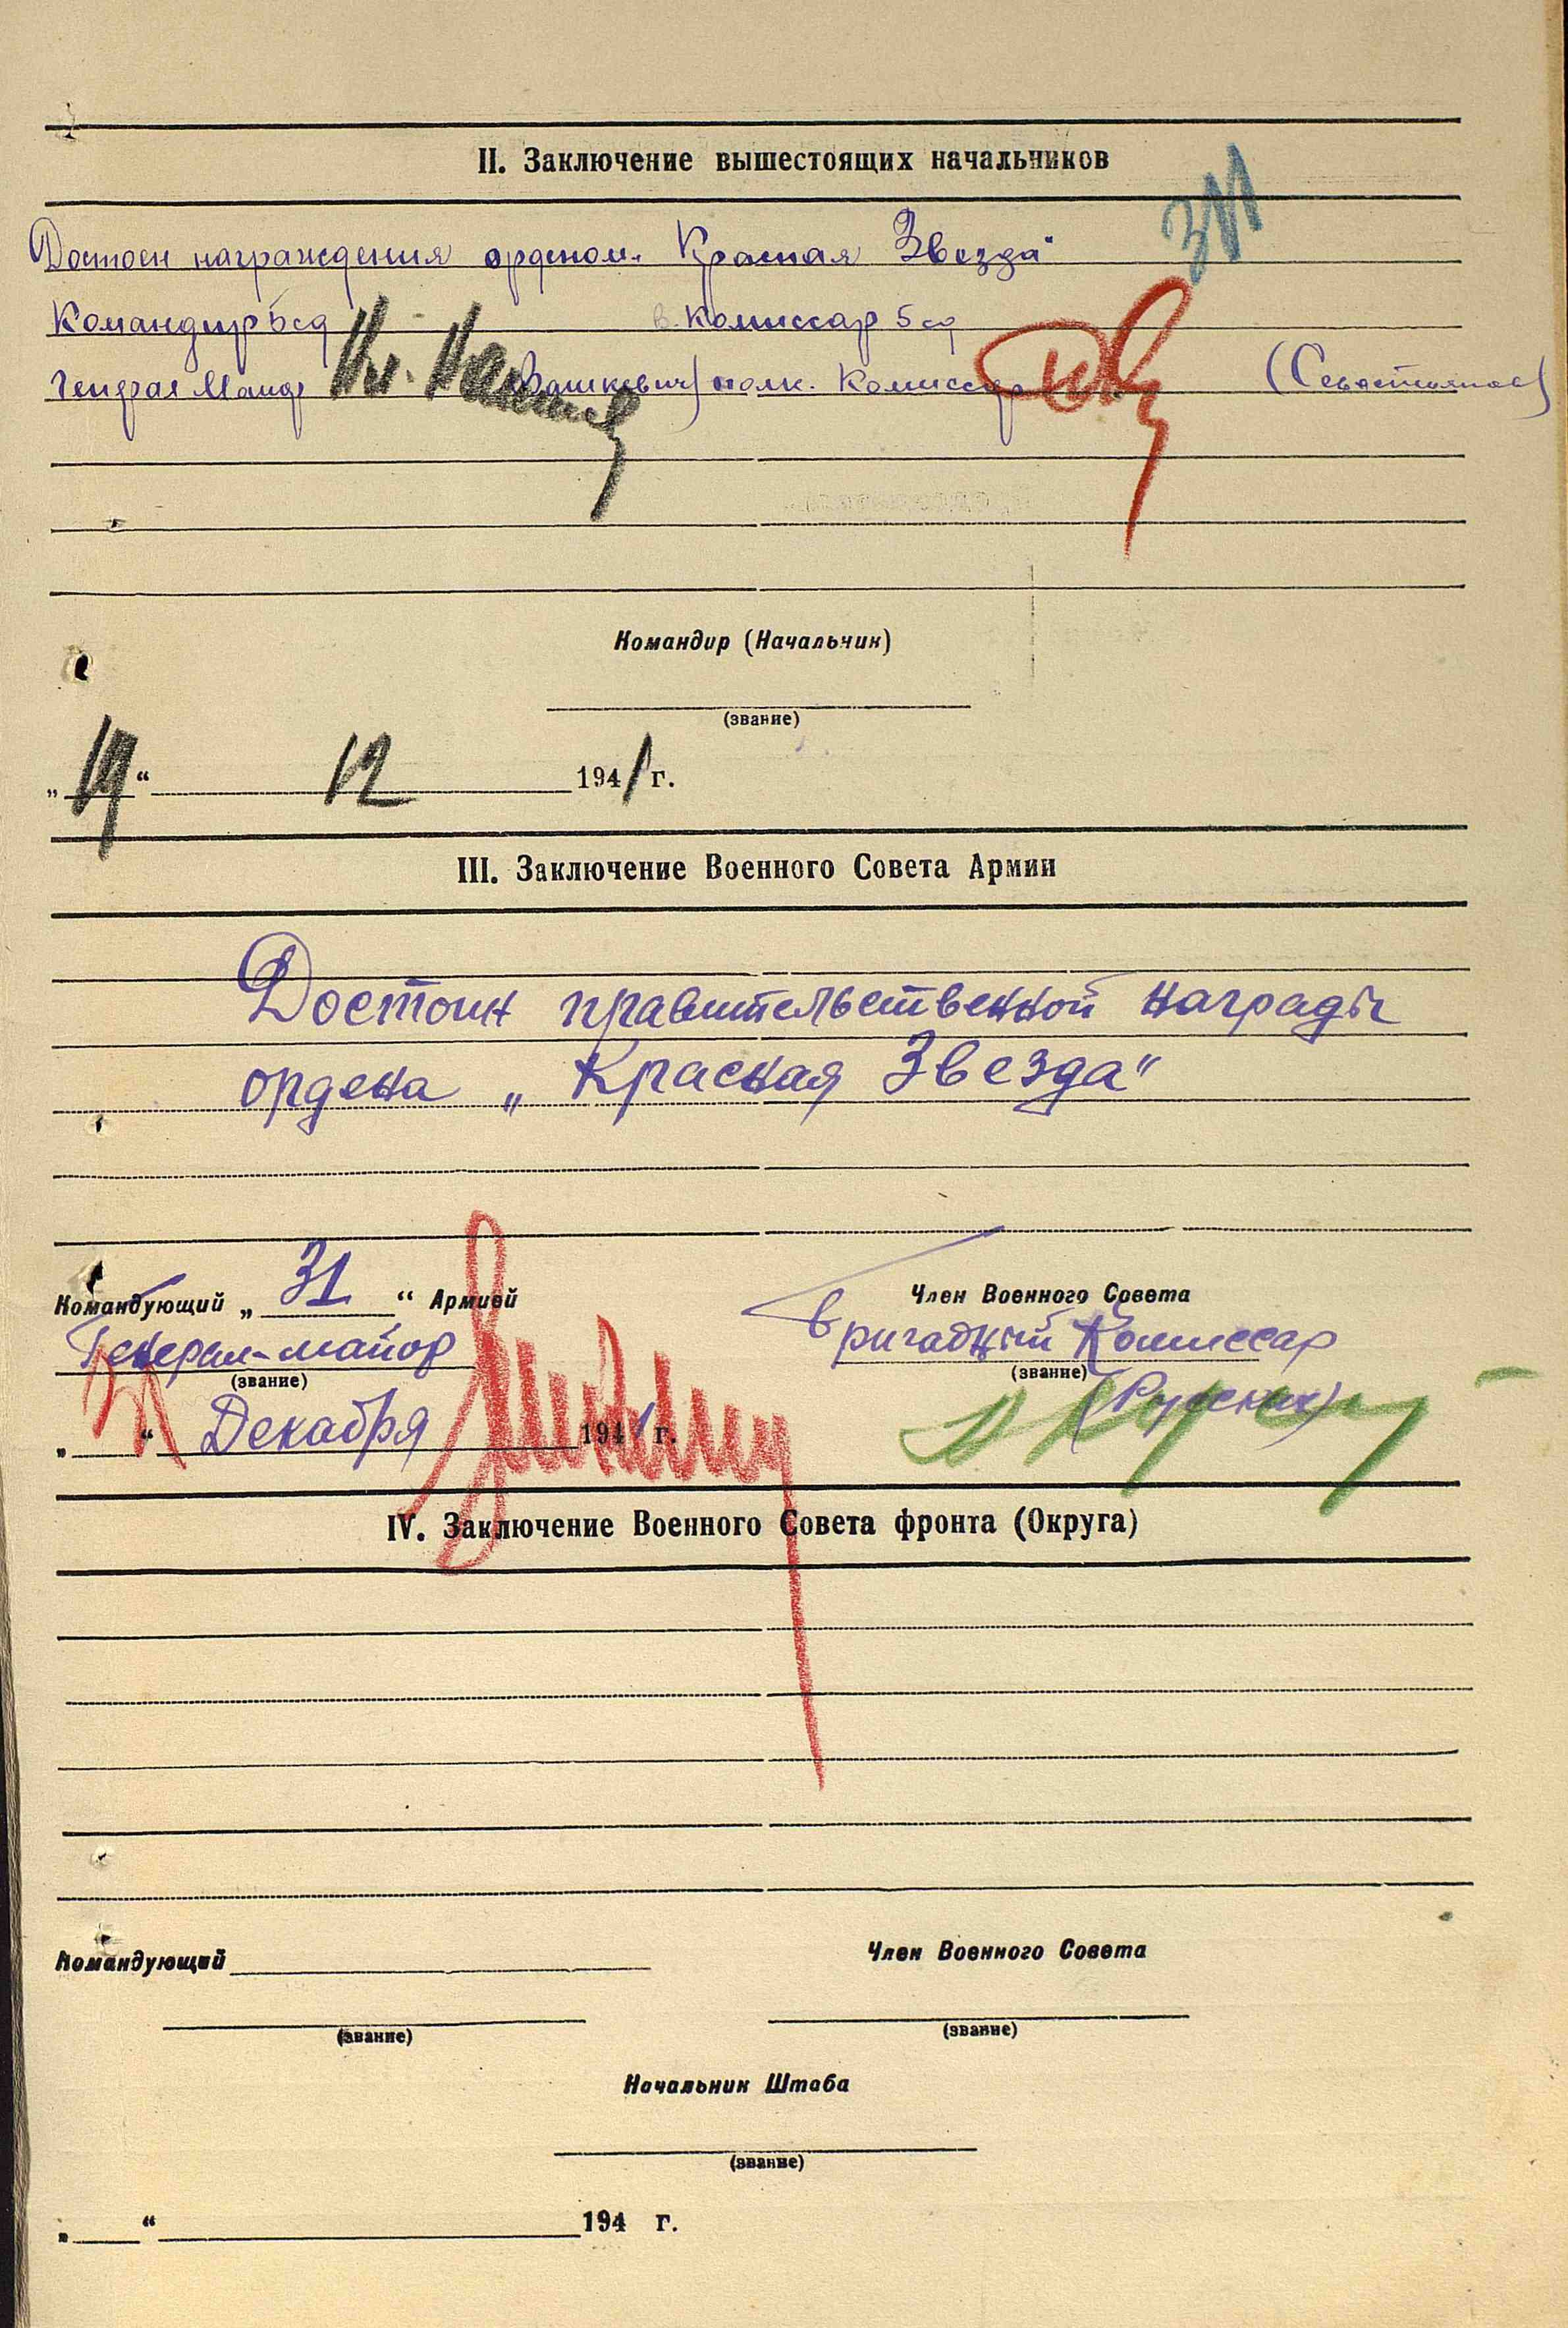 II. Заключение вышестоящих начальников
Достоен награждения орденом „Красная Звезда"
Командир 5сд в. Комиссар 5 сд
Генерал Маиор (Вашкевич) полк. Комиссар (Севастьянов)
Командир (Начальник)
(звание)
„19“ 12 1941 г.
III. Заключение Военного Совета Армии
Достоин правительственной награды
ордена „Красная Звезда"
Командующий „31“ Армией
Член Военного Совета
Генерал-майор Бригадный Комиссар
(звание) (звание)
(Русских)
„ “ Декабря 1941 г.
IV. Заключение Военного Совета фронта (Округа)
Командующий Член Военного Совета
(звание) (звание)
Начальник Штаба
(звание)
„ “ 194 г.